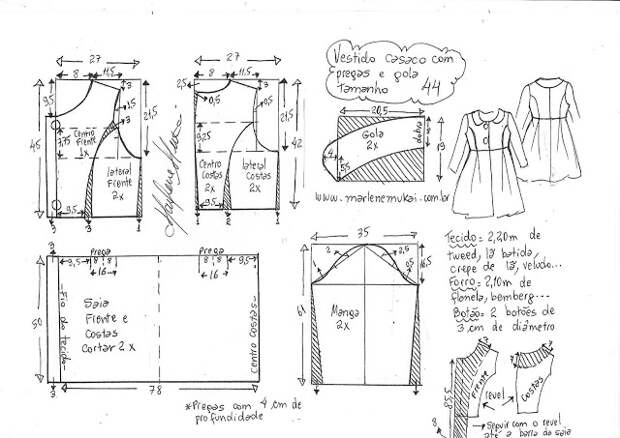 27
8
11,5
3
9,5
2,5
3
7,75
21,5
45
Centro
Frente
2x
lateral
Frente
2x
9,5
3
3
1
27
8
11,5
2,5
0,5
3
0,5
9,25
21,5
42
Centro
Costas
2x
lateral
Costas
2x
9,5
2
1
Marlene Mukai
Vestido casaco com
pregas e gola
Tamanho 44
20,5
Gola
2x
dobra
8
19
4
5,5
www.marlenemukai.com.br
3
Prega
9,5
8
8
16
Prega
8
8
9,5
16
50
Fio do tecido
Saia
Frente e
Costas
Cortar 2x
centro costas
3
78
*Pregas com 4 cm de
profundidade
35
2
2,5
1
0,5
16,5
61
Manga
2x
Tecido = 2,20m de
tweed, lã batida,
crepe de lã, veludo...
Forro = 2,10m de
flanela, bemberg---
Botão = 2 botões de
3 cm de diâmetro
3
3
Frente
revel
Costas
8
→Seguir com o revel
até a barra da saia